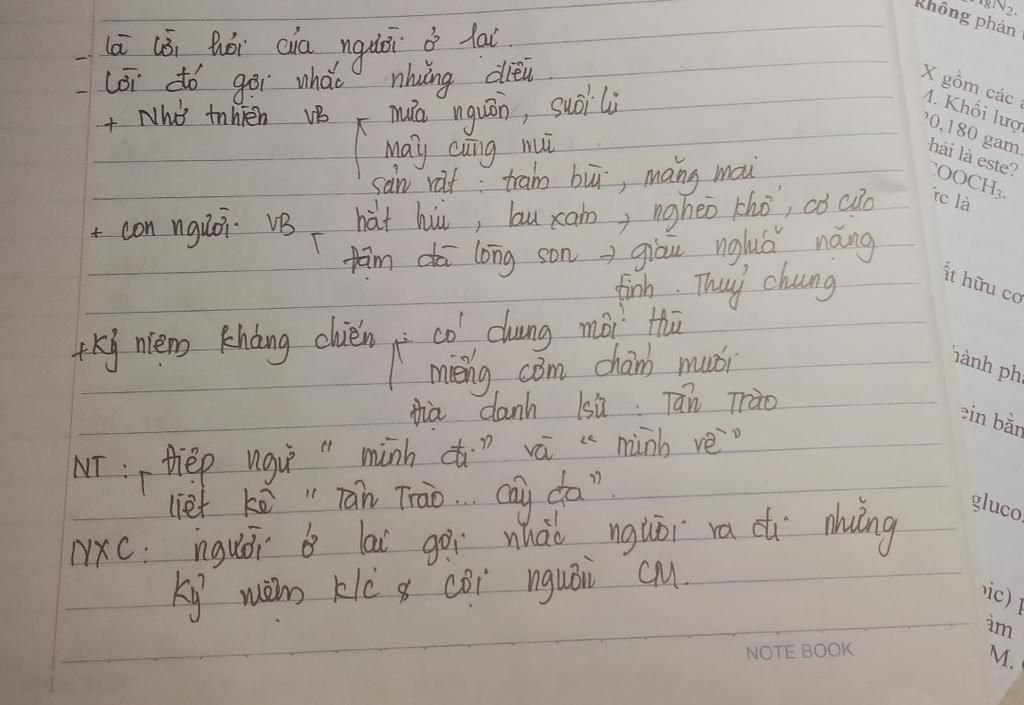 - Là lời hỏi của người ở lại.
- Lời đó gợi nhắc những điều
+ Nhớ tnhiên VB mưa nguồn, suối lũ
mây cùng mù
sản vật : trám bùi, măng mai
+ con người VB hắt hiu, lau xám → nghèo khổ, cơ cực
đậm đà lòng son → giàu nghĩa nặng
tình. Thuỷ chung
+ Kỷ niệm kháng chiến : có chung mối thù
miếng cơm chấm muối
Địa danh lsử : Tân Trào
NT : Điệp ngữ " mình đi" và " mình về"
liệt kê " Tân Trào... cây đa".
NXC : người ở lại gợi nhắc người ra đi những
kỷ niệm k/c & cội nguồn CM.
NOTE BOOK
không phản
X gồm các
M. Khối lượ
0,180 gam.
phải là este?
COOCH₃.
ức là
ất hữu cơ
hành ph
ein bằn
gluco
M.